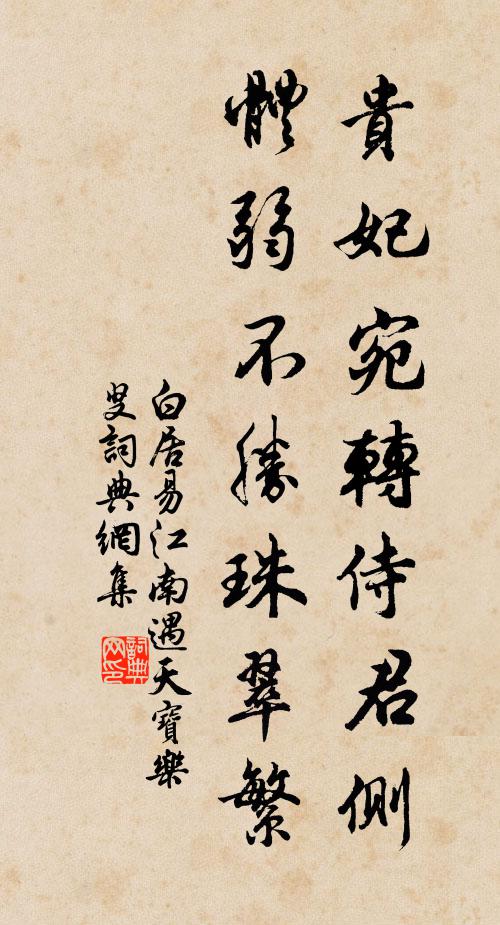 貴妃宛轉侍君側
體弱不勝珠翠繁
白居易江南遇天寶樂
叟詞典網集
詞典网印